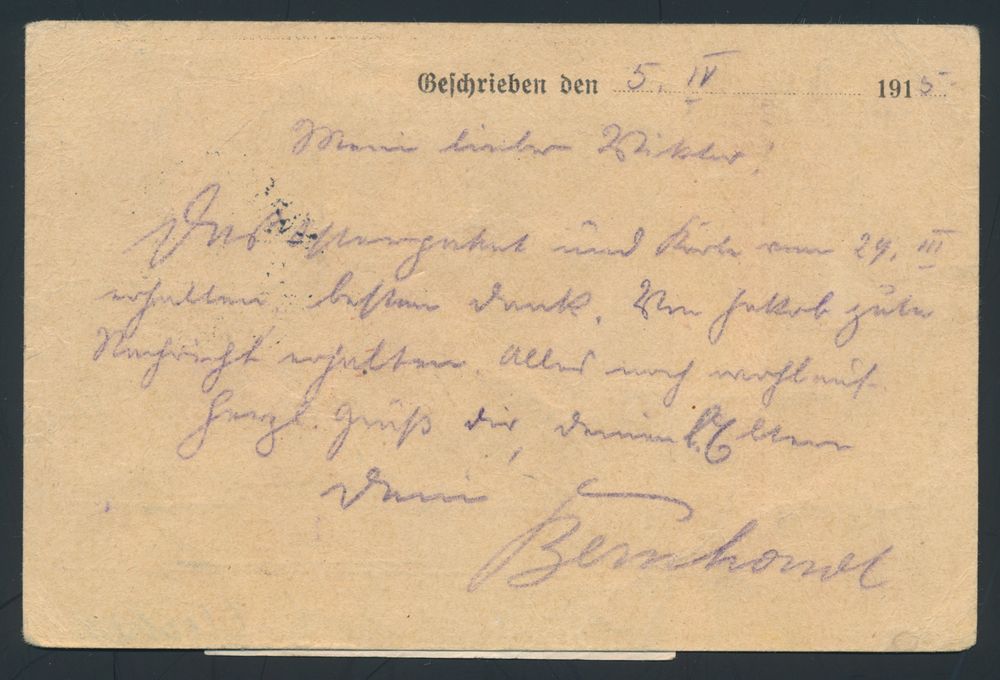 Geschrieben den 5. IV 1915
Mein lieber Viktor!
Das Osterpaket und Karte vom 29. III
erhalten, besten Dank. Von Jakob gute
Nachricht erhalten. Alles noch wohlauf.
Herzl. Gruß dir, deinen l. Eltern
Dein
Bernhardt